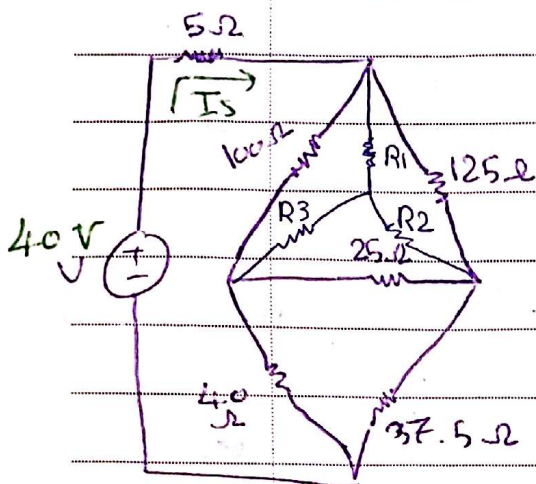 5Ω
Is
100Ω
R1
125Ω
R3
R2
40V
+
25Ω
-
40
Ω
37.5Ω